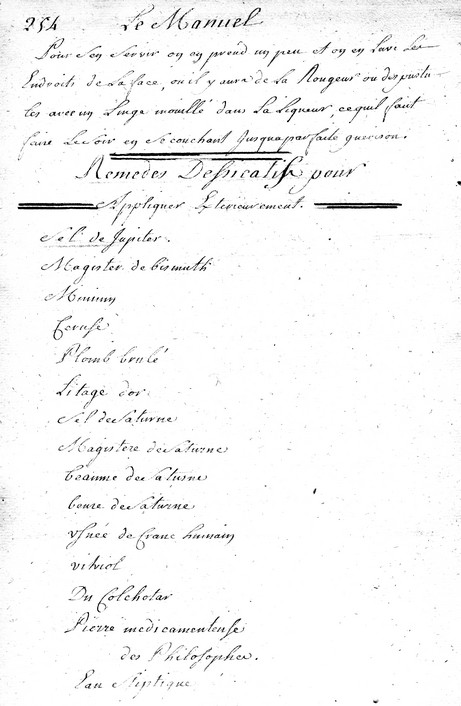 254 Le Manuel
Pour s'en servir on en prend un peu et on en Lave Les
Endroits de La face, ou il y aura de La Rougeur ou des pustu-
les avec un Linge mouillé dans La Liqueur, ce quil faut
faire Le Soir en Se couchant Jusqua parfaite guerison.
Remedes Dessicatifs pour
Appliquer Exterieurement.
Sel de Jupiter.
Magister de bismuth
Minium
Ceruse
Plomb brulé
Litage d'or
Sel de Saturne
Magistere de Saturne
beaume de Saturne
beure de Saturne
usnée de Crane humain
vitriol
Du Colchotar
Pierre medicamenteuse
des Philosophes.
Eau Stiptique